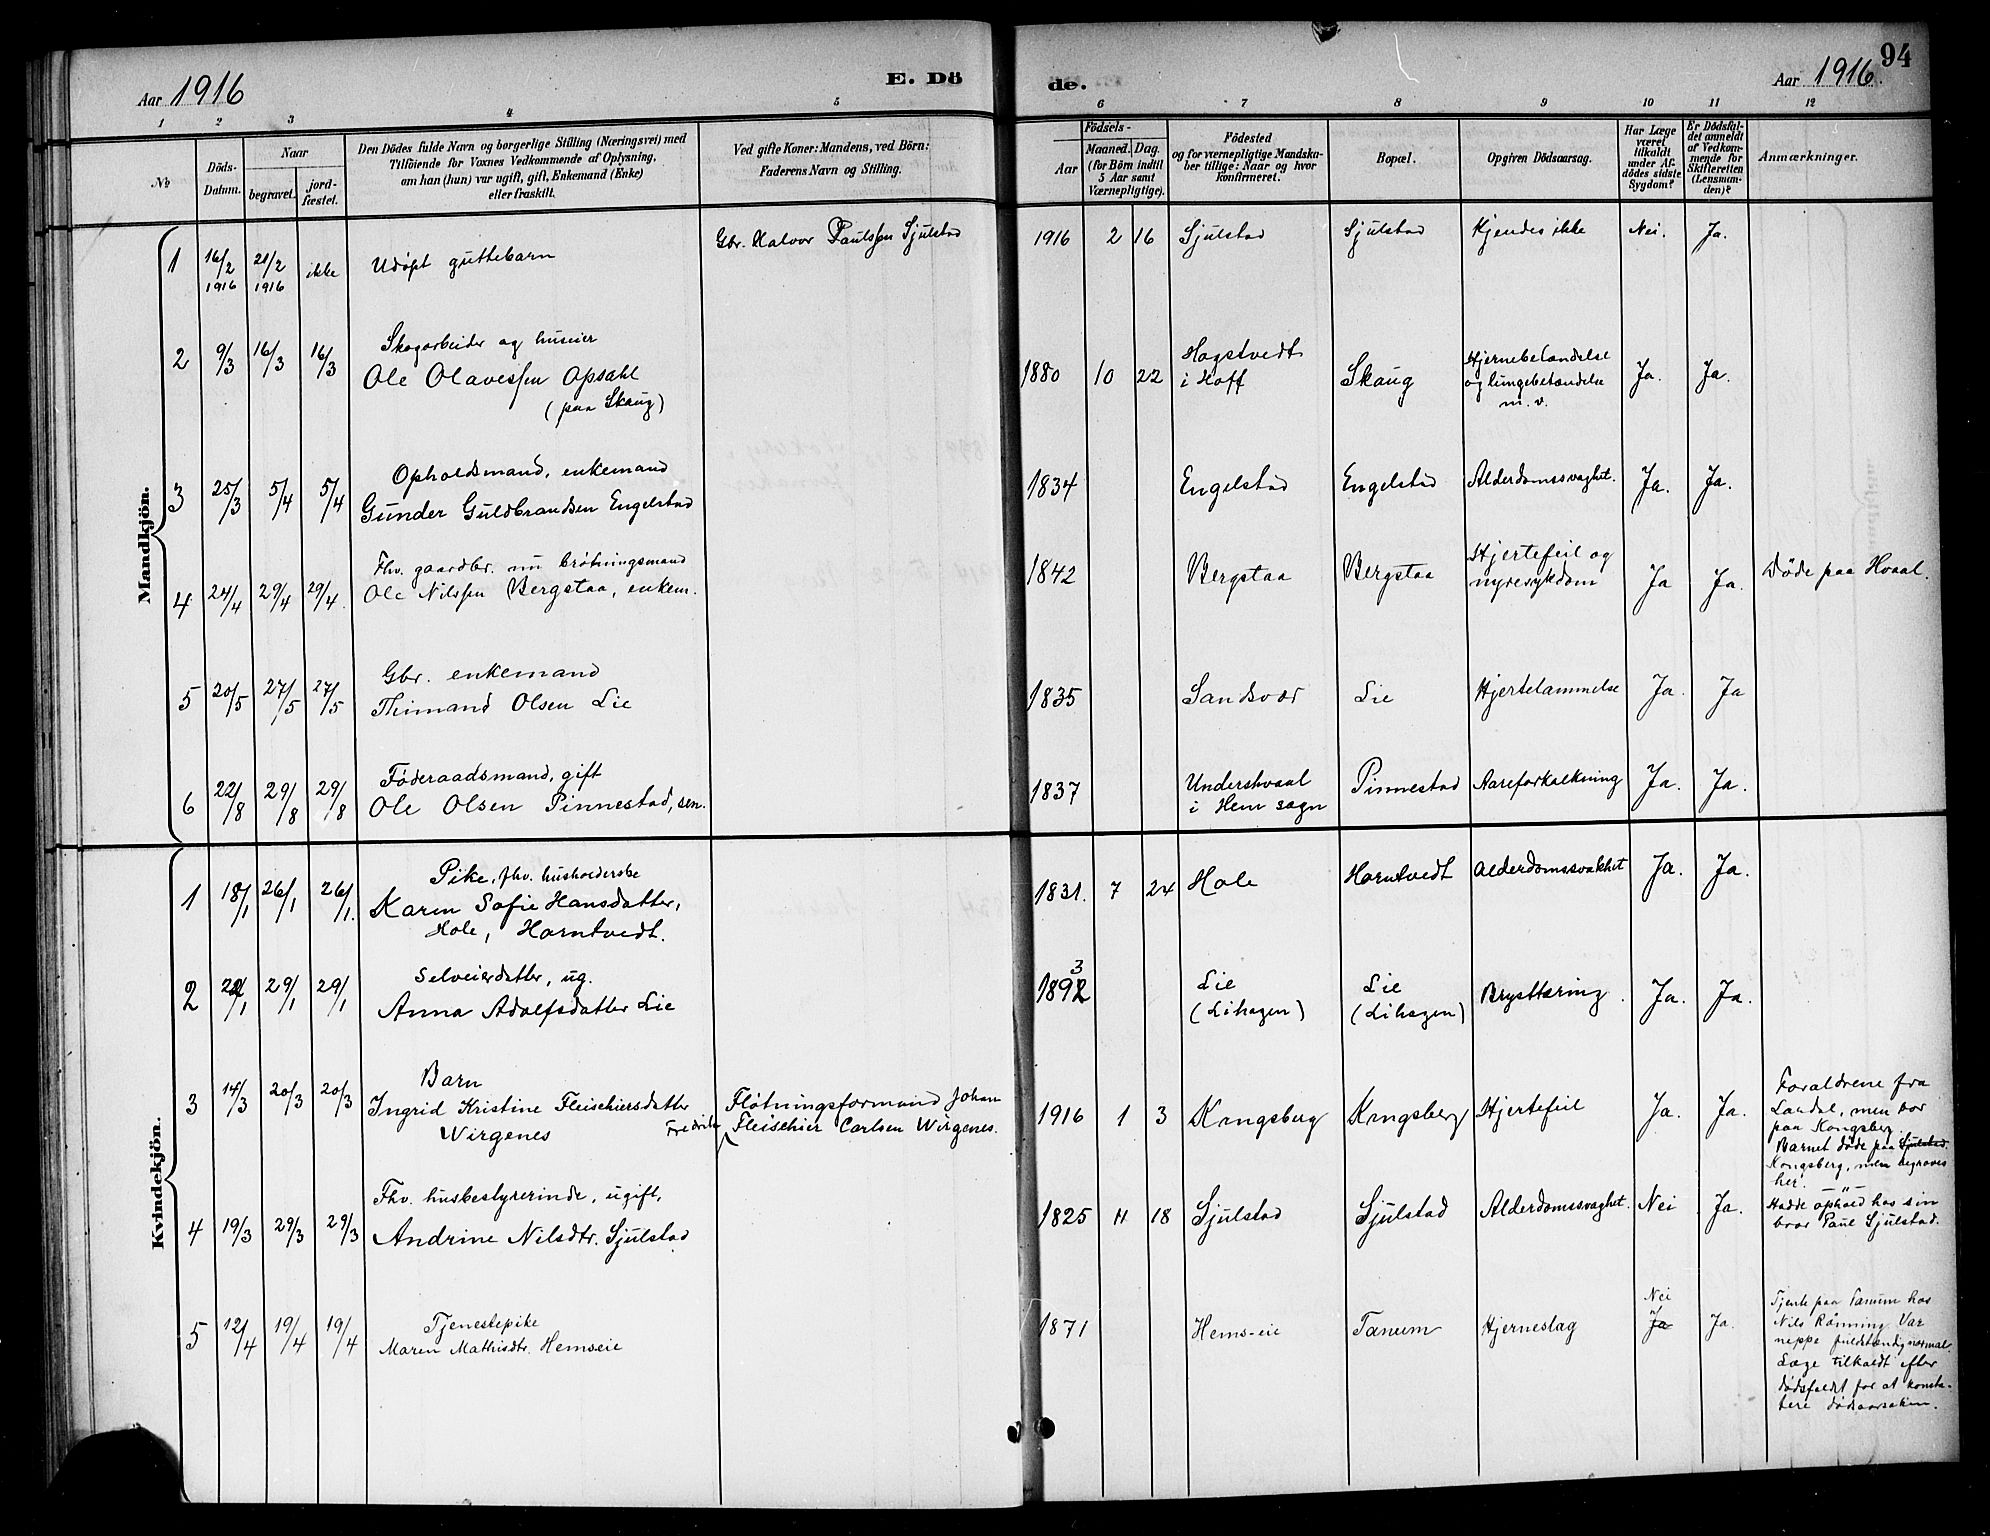 94
Aar 1916
E. Dö
de.
Aar 1916.
1 2 3 4 5 6 7 8 9 10 11 12
№
Döds-
Datum.
Naar
begravet.
jord-
fæstet.
Den Dödes fulde Navn og borgerlige Stilling (Næringsvei) med
Tilföiende for Voxnes Vedkommende af Oplysning,
om han (hun) var ugift, gift, Enkemand (Enke)
eller fraskilt.
Ved gifte Koner: Mandens, ved Börn:
Faderens Navn og Stilling.
Födsels-
Aar
Maaned. Dag.
(for Börn indtil
5 Aar samt
Værnepligtige).
Födested
og for værnepligtige Mandska-
ber tillige: Naar og hvor
konfirmeret.
Bopæl.
Opgiven Dödsaarsag.
Har Læge
været
tilkaldt
under Af-
dödes sidste
Sygdom?
Er Dödsfal-
det anmeldt
af Vedkom-
mende for
Skifteretten
(Lensman-
den)?
Anmærkninger.
Mandkjön.
1 16/2 1916 21/2 1916 ikke Udöpt guttebarn
Gbr. Halvor Paulssen Sjulstad
1916 2 16 Sjulstad Sjulstad Kjendes ikke Nei. Ja.
2 9/3 16/3 16/3 Skogarbeider og huseier
Ole Olavessen Opsahl
(paa Skaug)
1880 10 22 Hagstvedt
i Hoff
Skaug
Hjernebetændelse
og lungebetændelse
m. v.
Ja. Ja.
3 25/3 5/4 5/4 Opholdsmand, enkemand
Gunder Guldbrandsen Engelstad
1834 Engelstad Engelstad Alderdomssvaghet. Ja. Ja.
4 24/4 29/4 29/4. Fhv. gaardbr. nu brötningsmand
Ole Nilssen Bergstaa, enkem.
1842 Bergstaa Bergstaa Hjertefeil og
nyresykdom
Ja Ja. Döde paa Hvaal.
5 20/5 27/5 27/5 Gbr. enkemand
Thimand Olsen Lie
1835 Sandsvær Lie Hjertelammelse Ja. Ja
6 22/8 29/8 29/8 Föderaadsmand, gift
Ole Olsen Pinnestad, sen.
1837 Undershvaal
i Hem sogn
Pinnestad Aareforkalkning Ja. Ja.
Kvindekjön.
1 18/1 26/1 26/1. Pike, fhv. husholderske
Karen Sofie Hansdatter,
Hole, Horntvedt.
1831. 7 24 Hole Horntvedt Alderdomssvakhet Ja. Ja.
2 29/1 29/1 Selveierdatter, ug.
Anna Adolfsdatter Lie
3
1892 Lie
(Lihagen)
Lie
(Lihagen)
Brysttæring. Ja. Ja.
3 14/3 20/3 20/3 Barn
Ingrid Kristine Fleischersdatter
Wirgenes
Flötningsformand Johan
Fredrik Fleischer Carlsen Wirgenes.
1916 1 3 Kongsberg Kongsberg Hjertefeil Ja. Ja.
Foraldrene fra
Landal, men bor
paa Kongsberg.
Barnet döde paa Sjulstad.
Kongsberg, men begraves
her.
4 19/3 29/3 29/3 Fhv. huskestyrerinde, ugift,
Andrine Nilsdtr. Sjulstad
1825 11 18 Sjulstad Sjulstad Alderdomssvaghet. Nei Ja.
— " —
Hadde ophold hos sin
bror Paul Sjulstad.
5 12/4 19/4 19/4 Tjenestepike
Maren Mathisdtr. Hemseie
1871 Hems-eie Tanum Hjerneslag
Nei
Ja Ja.
Tjente paa Tanum hos
Nils Rönning. Var
neppe fuldstændig normal.
Læge tilkaldt efter
dödsfaldet for at konsta-
tere dödsaarsaken.